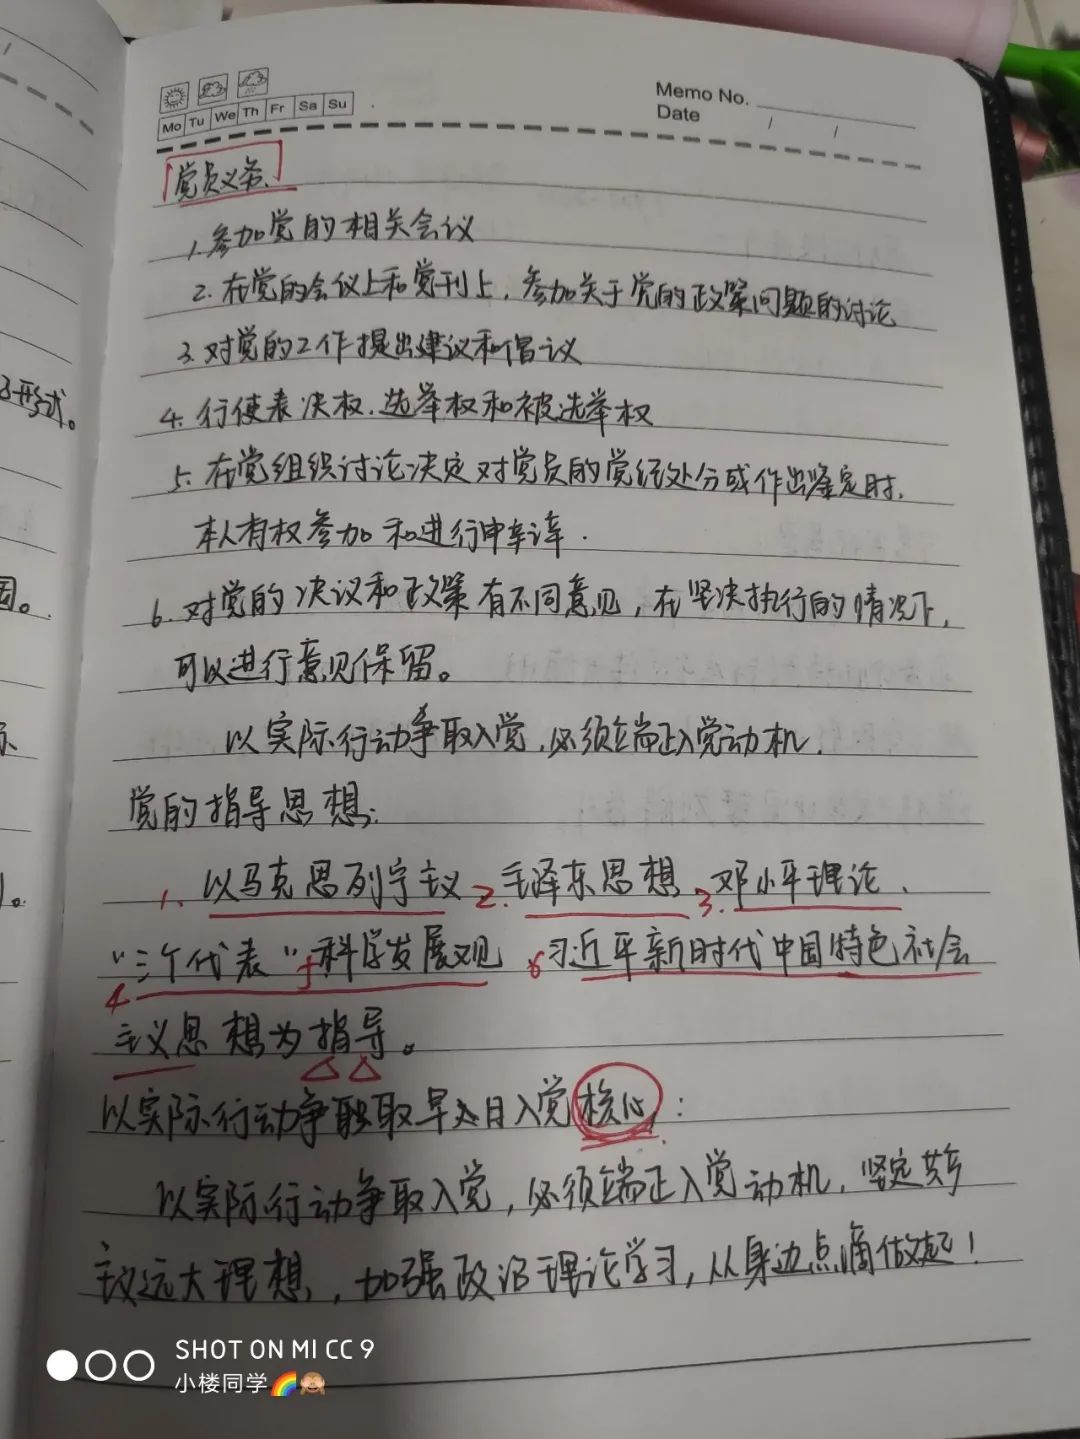 Memo No.
Date / /
Mo Tu We Th Fr Sa Su
党员义务.
1.参加党的相关会议
2.在党的会议上和党刊上,参加关于党的政策问题的讨论
3.对党的工作提出建议和倡议
4.行使表决权.选举权和被选举权
5.在党组织讨论决定对党员的党纪处分或作出鉴定时,
本人有权参加和进行申辛
6.对党的决议和政策有不同意见,在坚决执行的情况下,
可以进行意见保留。
以实际行动争取入党,必须端正入党动机.
党的指导思想:
1.以马克思列宁主义2.毛泽东思想3.邓小平理论.
4"三个代表"5科学发展观6习近平新时代中国特色社会
主义思想为指导。
以实际行动争取早日入党核心:
以实际行动争取入党,必须端正入党动机,坚定共产
主义远大理想,加强政治理论学习,从身边点滴做起!
形式。
因。
际
SHOT ON MI CC 9
小楼同学🌈🙈